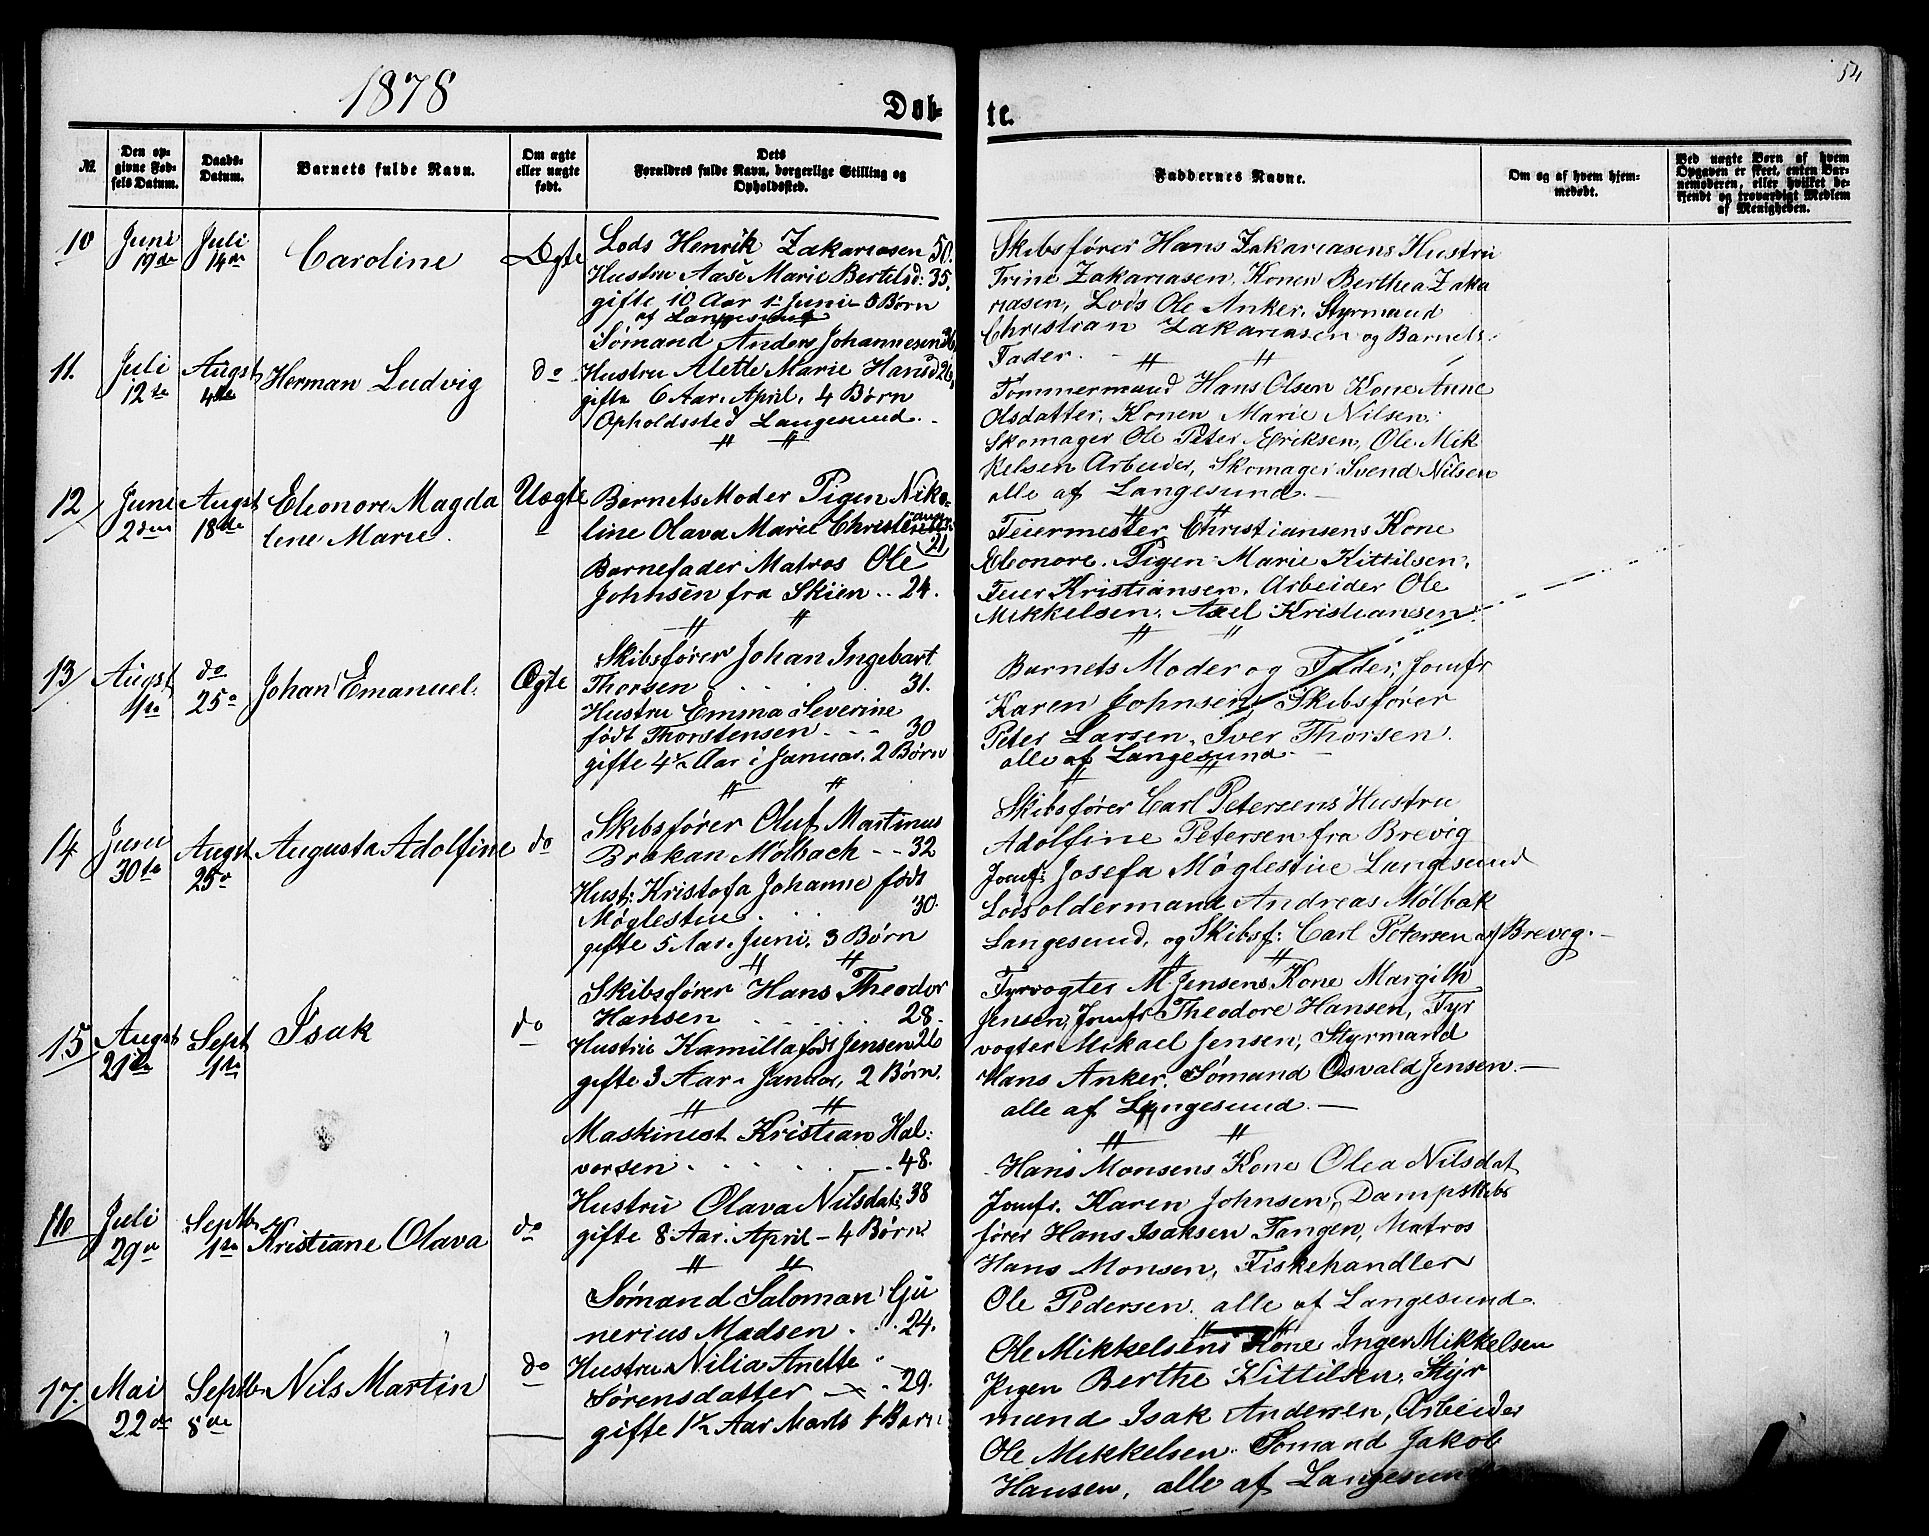 1878
Døb-
te.
54
№
Den op-
givne Fød-
sels Datum.
Daabs-
Datum.
Barnets fulde Navn.
Om ægte
eller uægte
født.
Dets
Forældres fulde Navn, borgerlige Stilling og
Opholdssted.
Faddernes Navne.
Om og af hvem hjem-
medøbt.
Ved uægte Børn af hvem
Opgaven er skeet, enten Bar-
nemoderen, eller hvilket be-
kjendt og troværdigt Medlem
af Menigheden.
10
Juni
19de
Juli
14de
Caroline
Ægte
Lods Henrik Zakariasen 50.
Hustru Aase Marie Bertelsd: 35.
gifte 10 Aar i Juni 8 Børn
af Langesund
Skibsfører Hans Zakariasens Hustru
Trine Zakariasen, Konen Berthea Zaka
riasen, Lods Ole Anker, Styrmand
Christian Zakariasen og Barnets
Fader.
11.
Juli
12te
Augst
4de
Herman Ludvig
do
Sømand Anders Johannesen 36,
Hustru Alette Marie Hansd 26,
gifte 6 Aar. April, 4 Børn
Opholdssted Langesund.
Tømmermand Hans Olsen Kone Anne
Olsdatter, Konen Marie Nilsen.
Skomager Ole Peter Eriksen, Ole Mik
kelsen Arbeider, Skomager Svend Nilsen
alle af Langesund.
12
Juni
2den
Augst
18de
Eleonore Magda
lene Marie.
Uægte
Barnets Moder Pigen Niko-
line Olava Marie Christensen
21
Barnefader Matros Ole
Johnsen fra Skien .. 24.
Feiermester Christiansens Kone
Eleonore. Pigen Marie Kittilsen,
Feier Kristiansen, Arbeider Ole
Mikkelsen, Axel Kristiansen.
13
Augst
1ste
do
25de
Johan Emanuel.
Ægte
Skibsfører Johan Ingebart
Thorsen . . . . 31.
Hustru Emma Severine
født Thorstensen . - - 30
gifte 4½ Aar i Januar. 2 Børn
Barnets Moder og Fader, Jomfr
Karen Johnsen, Skibsfører
Peter Larsen, Iver Thorsen.
alle af Langesund
14
Juni
30te
Augst
25de
Augusta Adolfine
do
Skibsfører Oluf Martinus
Brokan Mølbach - - 32
Hust: Kristofa Johanne født
Møglestue . . . 30.
gifte 5 Aar. Juni, 3 Børn
Skibsfører Carl Petersens Hustru
Adolfine Petersen fra Brevig
Jomf: Josefa Møglestue Langesund
Lodsoldermand Andreas Mølbak
Langesund, og Skibsf: Carl Petersen af Brevig.
15
Augst
21de
Sept
1ste
Isak
do
Skibsfører Hans Theodor
Hansen . . . . 28.
Hustru Kamilla født Jensen 26
gifte 3 Aar. Januar, 2 Børn.
Fyrvogter M. Jensens Kone Margith
Jensen, Jomfr Theodore Hansen, Fyr
vogter Mikael Jensen, Styrmand
Hans Anker. Sømand Osvald Jensen.
alle af Langesund.
16
Juli
29de
Septb
1ste
Kristiane Olava
do
Maskinest Kristian Hal-
vorsen . . . . . 48.
Hustru Olava Nilsdat: 38
gifte 8 Aar. April - 4 Børn
Hans Monsens Kone Olea Nilsdat
Jomfr. Karen Johnsen, Dampskibs
fører Hans Isaksen Tangen, Matros
Hans Monsen, Fiskehandler
Ole Pedersen. alle af Langesund.
17.
Mai
22de
Septb
8de
Nils Martin
do
Sømand Saloman Gu
nerius Madsen . . . 24.
Hustru Nilia Anette
Sørensdatter . 29.
gifte 1½ Aar Marts 1 Barn
Ole Mikkelsens Kone Inger Mikkelsen
Pigen Berthe Kittilsen, Styr
mand Isak Andersen, Arbeider
Ole Mikkelsen. Sømand Jakob
Hansen, alle af Langesund